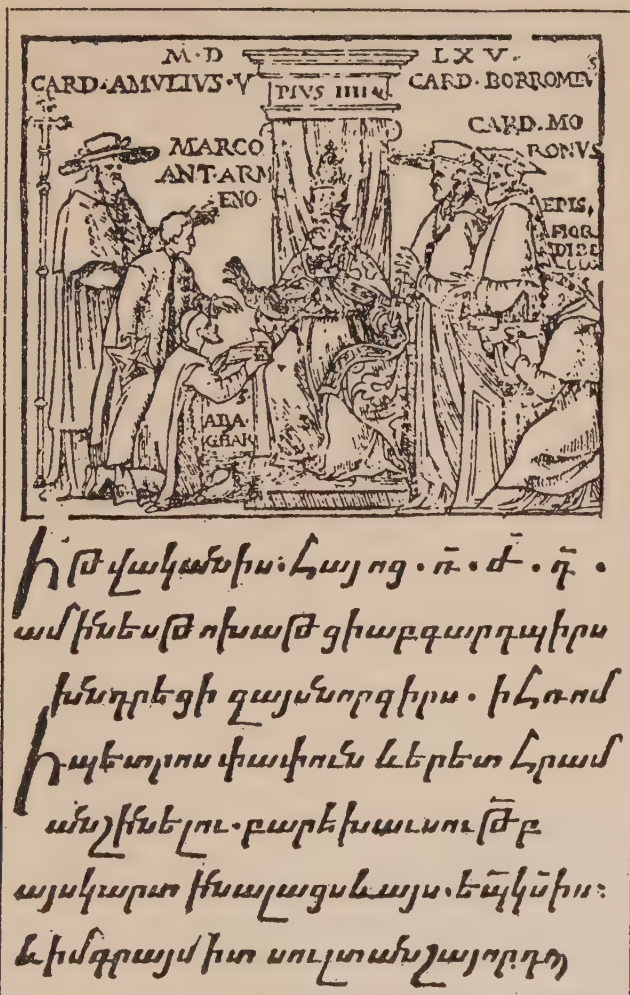 M·D LXV·
CARD·AMVLIVS·V PIVS IIII CARD·BORROMEVS
MARCO
ANT·ARM
ENO
CARD·MO
RONVS
EPIS,
ABA
GHAR
Ի թվականիս· Հայոց · ռ̄ · ժ̄ · դ̄ ·
ամ ես թոխաթցի աբգար դպիրս
խնդրեցի զայս նոր գիրս · ի Հռոմ
Ի պետրոս փափուն և երետ Հրամ
ան շինելու · բարեխաւսութբ̄
այս կարտինալացս և այս · եպ̄կս̄իս։
և իմ սուլտանշայ որդո